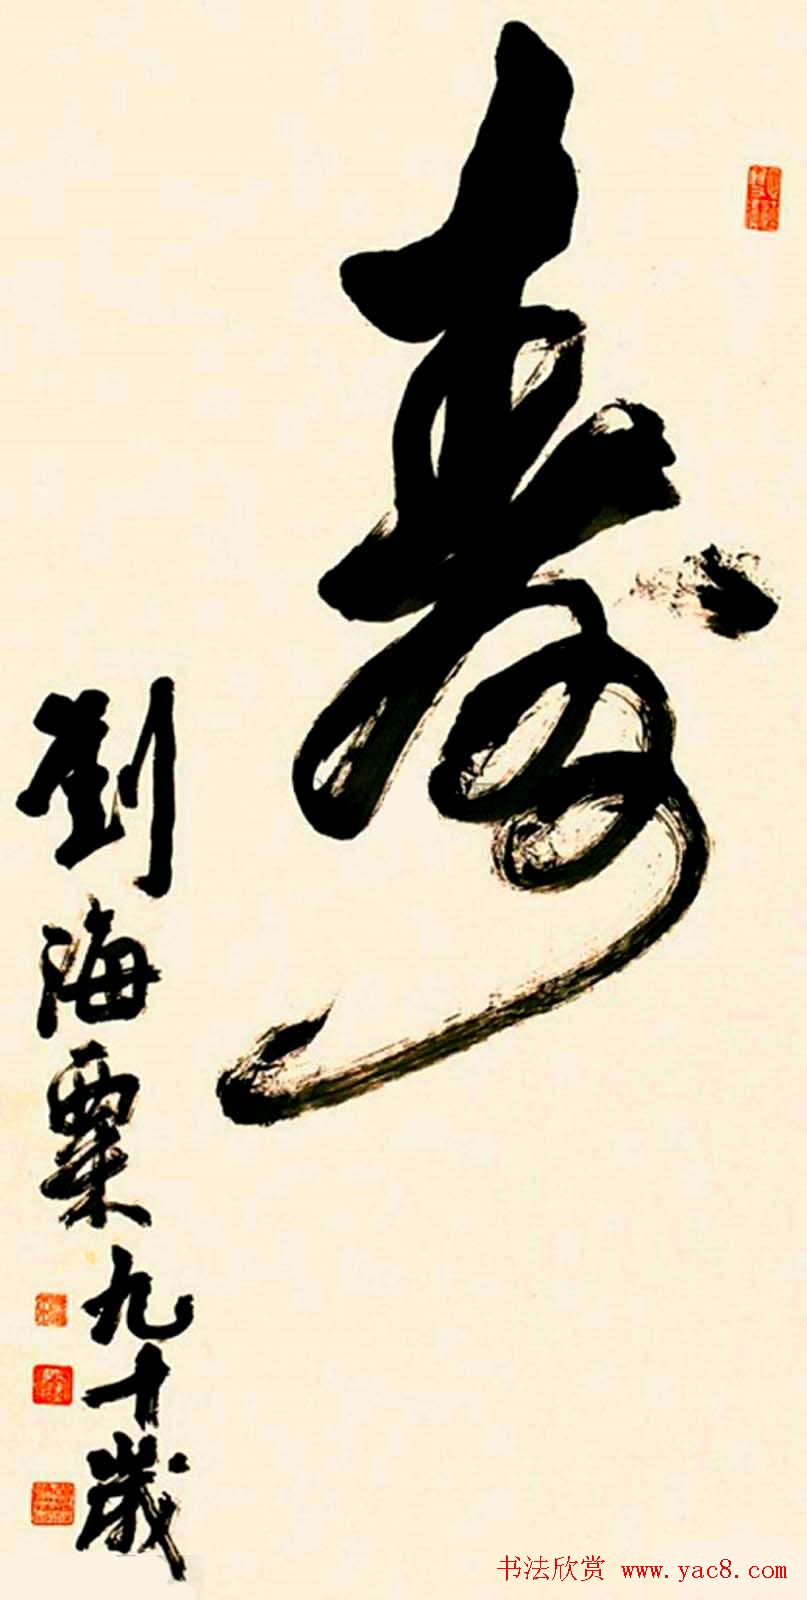 壽
劉海粟九十歲
书法欣赏 www.yac8.com